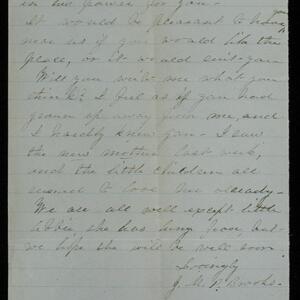 in our power for you.
It would be pleasant to have you
near us if you would like the
place, or it would suit you.
Will you write me what you
think? I feel as if you had
grown up away from me, and
I hardly knew you. I saw
the new mother last week,
and the little children all
seemed to love her already.
We are all well except little
Libbie, she has lung fever, but
we hope she will be well soon.
Lovingly
J. M. Brooks.